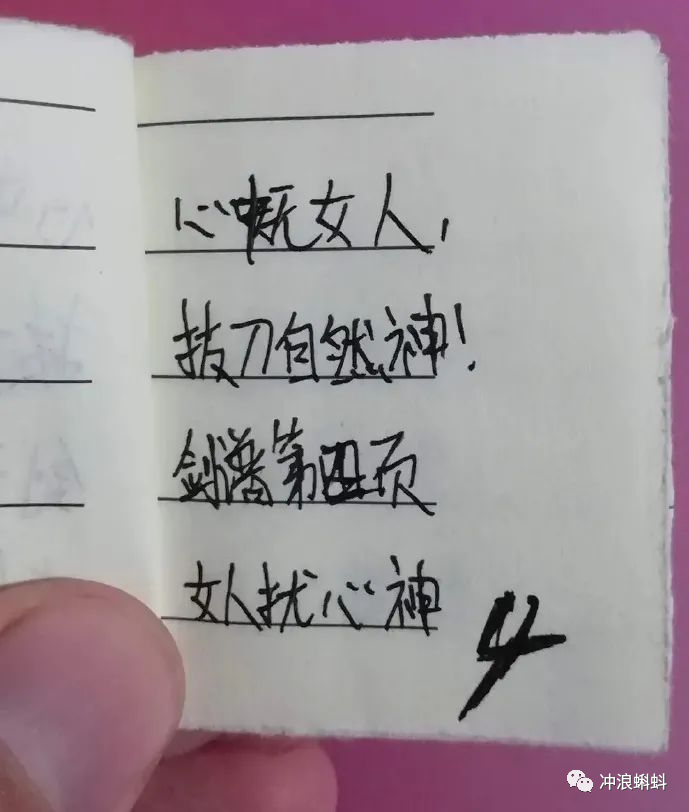 心中无女人,
拔刀自然神!
剑谱第四页
女人扰心神
4
冲浪蝌蚪